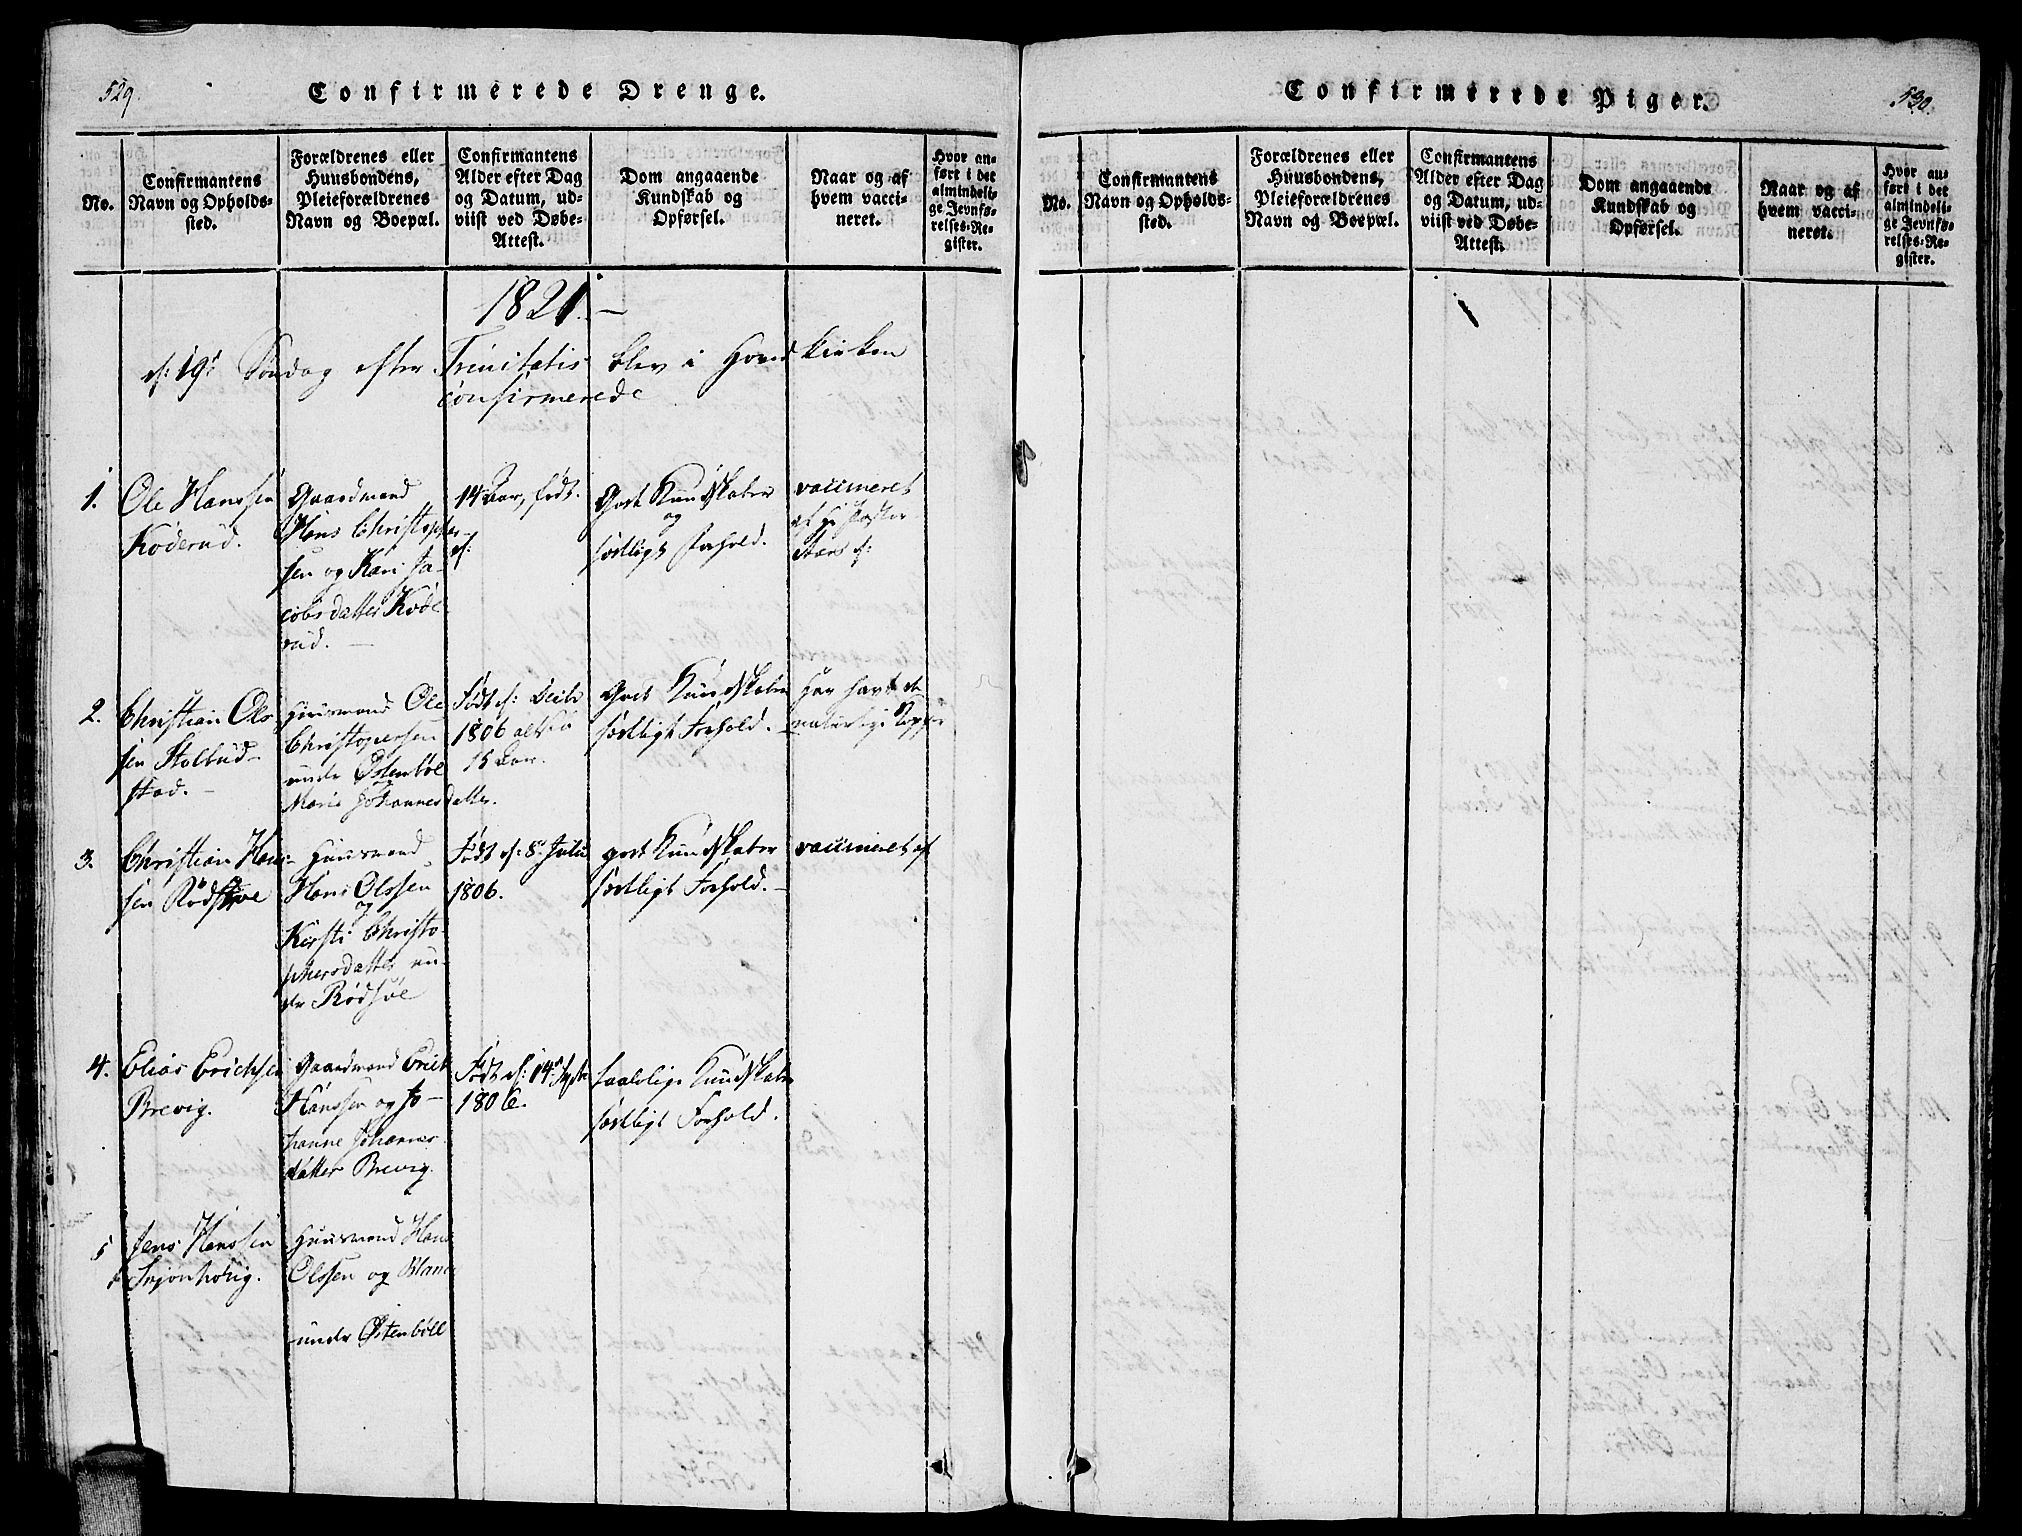 529.
Confirmerede Drenge.
No.
Confirmantens
Navn og Opholds-
sted.
Forældrenes eller
Huusbondens,
Pleieforældrenes
Navn og Boepæl.
Confirmantens
Alder efter Dag
og Datum, ud-
viist ved Døbe-
Attest.
Dom angaaende
Kundskab og
Opførsel.
Naar og af
hvem vacci-
neret.
Hvor an-
ført i det
almindeli-
ge Jevnfø-
relses-Re-
gister.
1821.
d: 19d Søndag efter Trinitatis blev i Hovedkirken
confirmerede
1.
Ole Hanssen
Köderud.
Gaardmand
Hans Christopher-
sen og Kari Ja-
cobsdatter Köde-
rud.
14 Aar, født
d:
Godt Kundskaber
og
sædeligt Forhold.
vaccineret
af
d:
2.
Christian Ols
sen Stolbud-
stad.
Huusmand Ole
Christopersen
under Østenböl
Marie Johannesdatter.
Født d: Decbr
1806
15 Aar.
Godt Kundskaber
sædeligt Forhold.
Har havt de
naturlige Kopper
3.
Christian Hans-
sen Rødsøe
Huusmand
Hans Olssen
og
Kirsti Christo-
phersdatter un-
der Rødsøe
Født d: 8d Julii
1806.
godt Kundskaber
sædeligt Forhold.
vaccineret af
4.
Elias Erichsen
Brevig.
Gaardmand Erich
Hanssen og Jo-
hanne Johannes
datter Brevig.
Født d: 14d Septbr
1806.
Kundskaber
sædeligt Forhold.
5
Jens Hanssen
Huusmand Hans
Olssen og
under Østenböll
Confirmerede Piger.
530.
No.
Confirmantens
Navn og Opholds-
sted.
Forældrenes eller
Huusbondens,
Pleieforældrenes
Navn og Boepæl.
Confirmantens
Alder efter Dag
og Datum, ud-
viist ved Døbe-
Attest.
Dom angaaende
Kundskab og
Opførsel.
Naar og af
hvem vacci-
neret.
Hvor an-
ført i det
almindeli-
ge Jevnfø-
relses-Re-
gister.